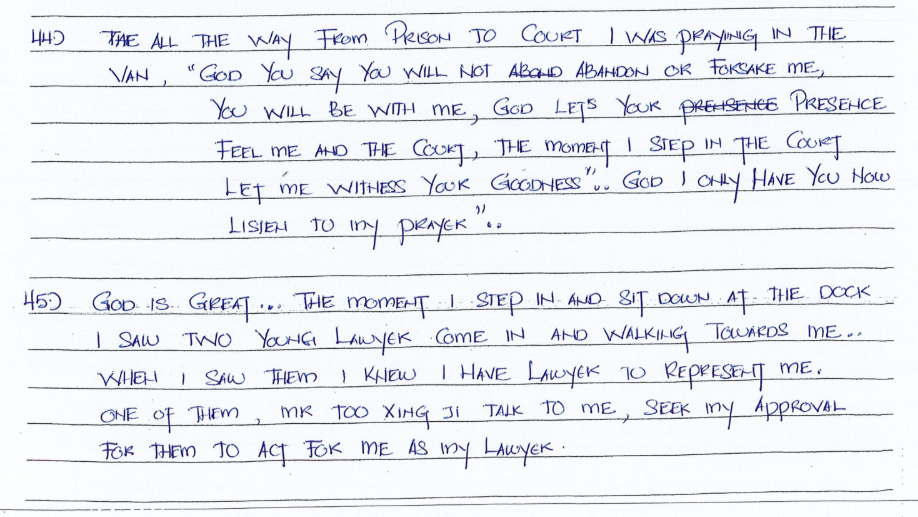 44) THE ALL THE WAY FROM PRISON TO COURT I WAS PRAYING IN THE
VAN, "GOD YOU SAY YOU WILL NOT ABOND ABANDON OR FORSAKE ME,
YOU WILL BE WITH ME, GOD LETS YOUR PRENSENCE PRESENCE
FEEL ME AND THE COURT, THE MOMENT I STEP IN THE COURT
LET ME WITNESS YOUR GOODNESS".. GOD I ONLY HAVE YOU NOW
LISTEN TO MY PRAYER"..
45.) GOD IS GREAT... THE MOMENT I STEP IN AND SIT DOWN AT THE DOCK
I SAW TWO YOUNG LAWYER COME IN AND WALKING TOWARDS ME..
WHEN I SAW THEM I KNEW I HAVE LAWYER TO REPRESENT ME.
ONE OF THEM, MR TOO XING JI TALK TO ME, SEEK MY APPROVAL
FOR THEM TO ACT FOR ME AS MY LAWYER.